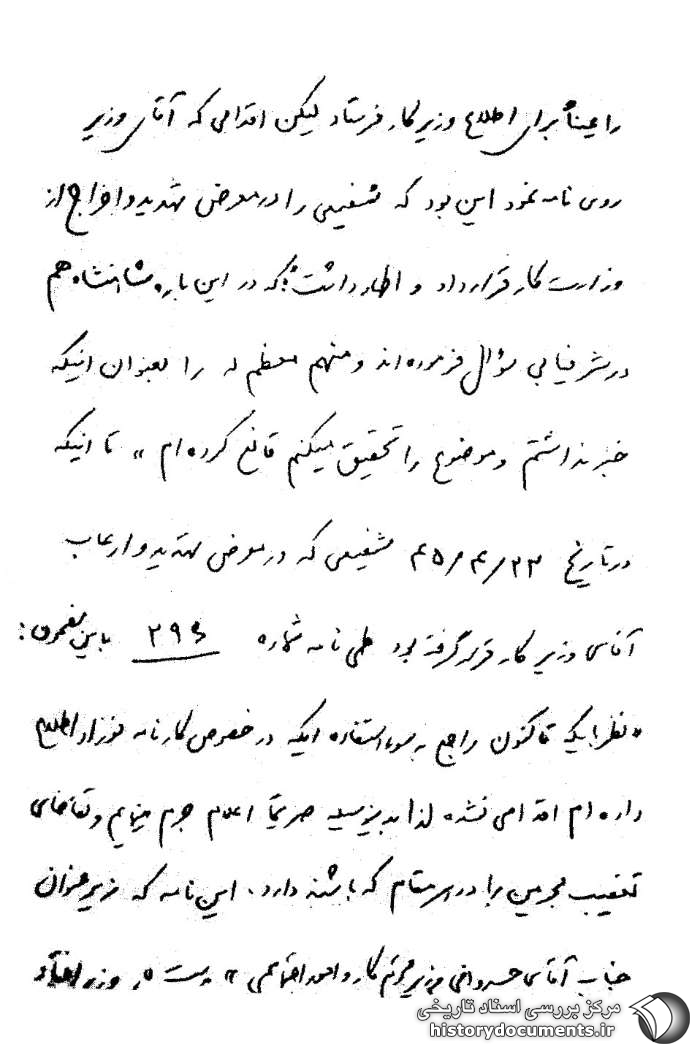 را عیناً برای اطلاع وزیر کار فرستاد لیکن اقدامی که آقای وزیر
روی نامه نمود این بود که شفیعی را در معرض تهدید و اخراج از
وزارت کار قرار داد و اظهار داشت: که در این باره شاهنشاه هم
در شرفیابی سؤال فرموده‌اند و منهم معظم له را بعنوان اینکه
خبر نداشتم و موضوع را تحقیق میکنم قانع کرده‌ام » تا اینکه
در تاریخ ۴۵/۴/۲۳ شفیعی که در معرض تهدید و ارعاب
آقای وزیر کار قرار گرفته بود طی نامه شماره ۲۹۶ باین مضمون:
« نظر باینکه تاکنون راجع به سوء استفاده ایکه در خصوص کارنامه نوزاد اطلاع
داده‌ام اقدامی نشده لذا بدینوسیله صریحاً اعلام جرم مینمایم و تقاضای
تعقیب مجرمین را در هر مقام که باشند دارد. این نامه که زیر عنوان
جناب آقای خسروانی وزیر محترم کار و امور اجتماعی » است
مرکز بررسی اسناد تاریخی
historydocuments.ir